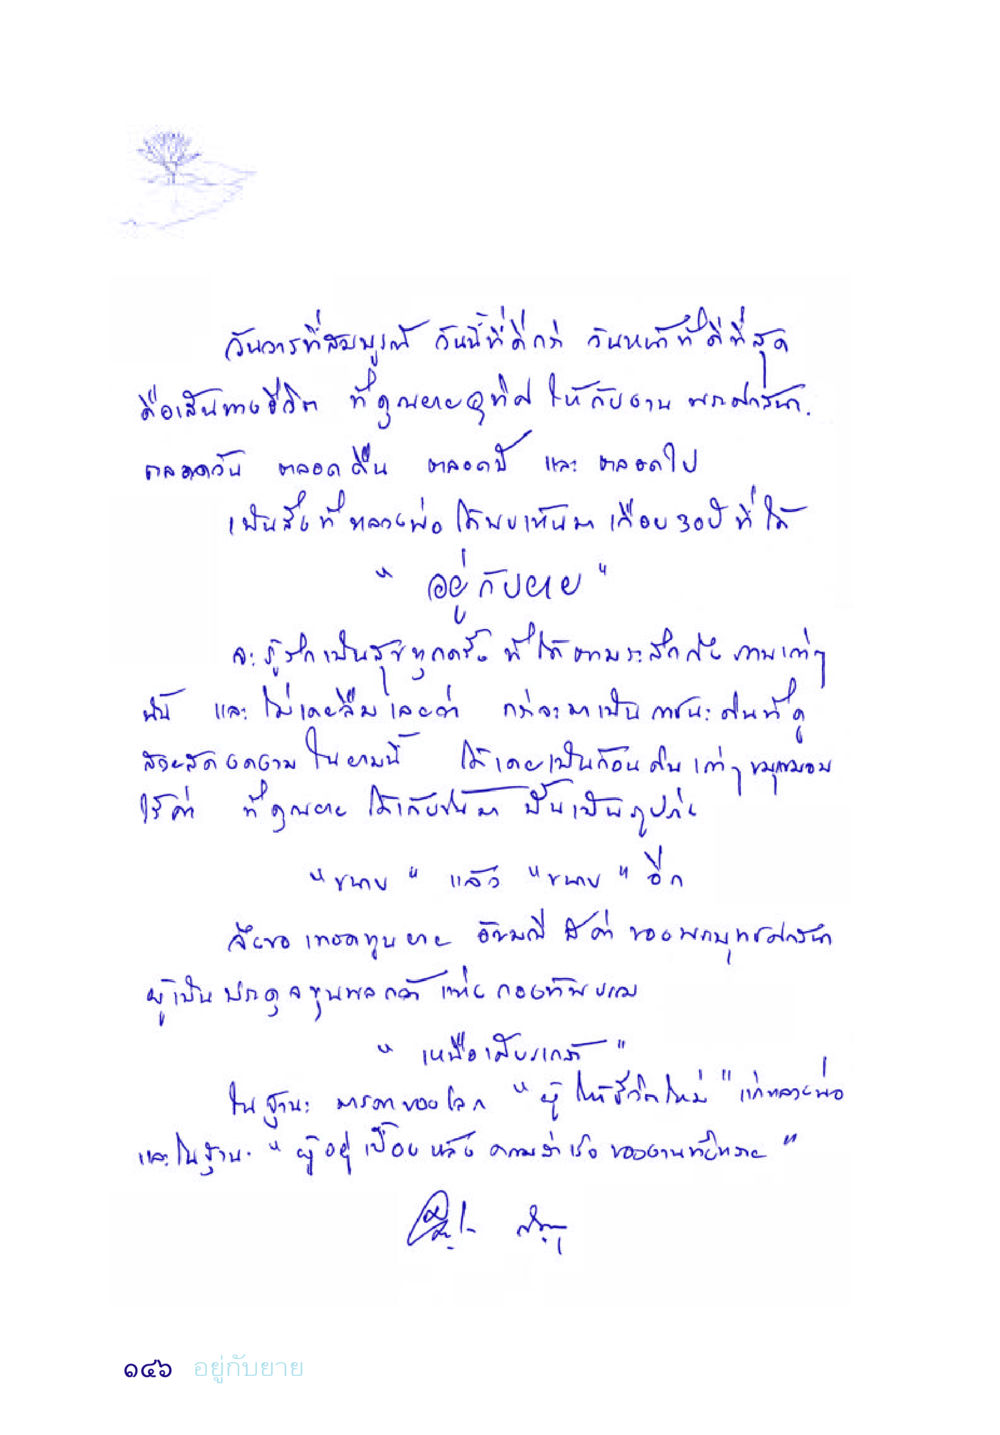 วันวารที่สมบูรณ์ วันนี้ที่ดีกว่า วันหน้าที่ดีที่สุด
คือเส้นทางชีวิต ที่คุณยายอุทิศ ให้กับงาน พระศาสนา.
ตลอดวัน ตลอดคืน ตลอดปี และ ตลอดไป
เป็นสิ่งที่ หลวงพ่อ ได้พบเห็นมา เกือบ 30 ปี ที่ได้
" อยู่กับยาย "
จะรู้สึกเป็นสุขทุกครั้ง ที่ได้ตามระลึกถึง ภาพเก่าๆ
นั้น และ ไม่เคยลืมเลยว่า กว่าจะมาเป็น ภาชนะดินที่ดู
สวยสดงดงาม ในยามนี้ ได้เคยเป็นก้อนดิน เก่าๆ ขมุกขมอม
ไร้ค่า ที่คุณยาย ได้เก็บขึ้นมา ปั้นเป็นรูปร่าง
"ขนาบ" แล้ว "ขนาบ" อีก
จึงขอ เทอดทูนยาย ของพระพุทธศาสนา
ผู้เป็น ประดุจขุนพลกล้า แห่งกองทัพธรรม
" เหนือเศียรเกล้า "
ในฐานะ มารดาของโลก " ผู้ให้ชีวิตใหม่ " แก่หลวงพ่อ
และในฐานะ " ผู้อยู่เบื้องหลัง ความสำเร็จ ของงานทั้งหลาย "
๑๔๖ อยู่กับยาย